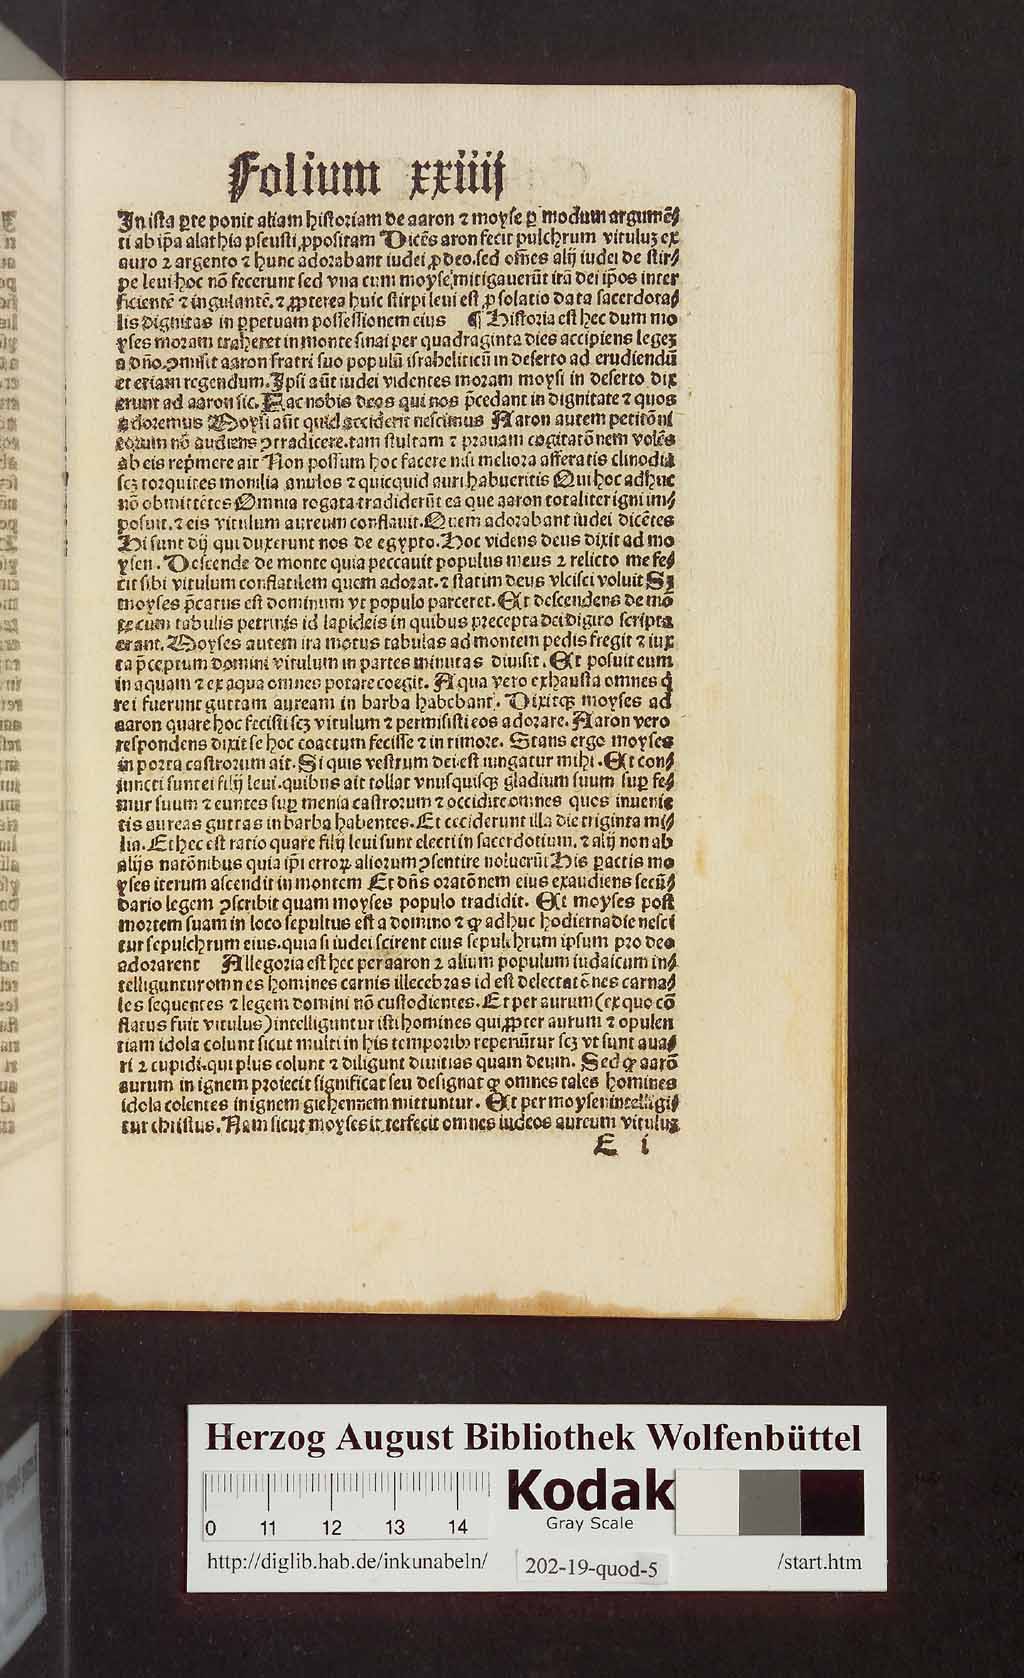 Folium xxiiij
In ista ꝑte ponit aliam historiam de aaron ⁊ moyse ꝑ modum argumē⸗
ti ab ip̄a alathia pseusti ꝓpositam Dicēs aron fecit pulchrum vituluꝫ ex
auro ⁊ argento ⁊ hunc adorabant iudei ꝓ deo. sed om̄es alij iudei de stir⸗
pe leui hoc nō fecerunt sed vna cum moyse mitigauerūt irā dei ip̄os inter
ficientē ⁊ iugulantē. ⁊ ꝓpterea huic stirpi leui est ꝓ solatio data sacerdota⸗
lis dignitas in ꝑpetuam possessionem eius ¶ Historia est hec dum mo
yses moram traheret in monte sinai per quadraginta dies accipiens legeꝫ
a dn̄o. ꝯmisit aaron fratri suo populū israheliticū in deserto ad erudiendū
et etiam regendum. Ipsi aūt iudei videntes moram moysi in deserto dix
erunt ad aaron sic. Fac nobis deos qui nos p̄cedant in dignitate ⁊ quos
adoremus Moysi aūt quid acciderit nescimus Aaron autem petitōni
eorum nō audiens ꝯtradicere. tam stultam ⁊ prauam cogitatōnem volēs
ab eis rep̄mere ait Non possum hoc facere nisi meliora afferatis clinodia
scꝫ torquites monilia anulos ⁊ quicquid auri habueritis Qui hoc adhuc
nō obmittētes Omnia rogata tradiderūt ea que aaron totaliter igni im⸗
posuit. ⁊ eis vitulum aureum conflauit. Quem adorabant iudei dicētes
Hi sunt dij qui duxerunt nos de egypto. Hoc videns deus dixit ad mo
ysen. Descende de monte quia peccauit populus meus ⁊ relicto me fe⸗
cit sibi vitulum conflatilem quem adorat. ⁊ statim deus vlcisci voluit Sꝫ
moyses p̄catus est dominum vt populo parceret. Et descendens de mō
te cum tabulis petrinis id lapideis in quibus precepta dei digito scripta
erant. Moyses autem ira motus tabulas ad montem pedis fregit ⁊ iux
ta p̄ceptum domini vitulum in partes minutas diuisit. Et posuit eum
in aquam ⁊ ex aqua omnes potare coegit. Aqua vero exhausta omnes q̄
rei fuerunt guttam auream in barba habebant. Dixitqꝫ moyses ad
aaron quare hoc fecisti scꝫ vitulum ⁊ permisisti eos adorare. Aaron vero
respondens dixit se hoc coactum fecisse ⁊ in timore. Stans ergo moyses
in porta castrorum ait. Si quis vestrum dei est iungatur mihi. Et con⸗
iuncti sunt ei filij leui. quibus ait tollat vnusquisqꝫ gladium suum suꝑ fe⸗
mur suum ⁊ euntes suꝑ menia castrorum ⁊ occidite omnes quos inuenie
tis aureas guttas in barba habentes. Et ceciderunt illa die triginta mi⸗
lia. Et hec est ratio quare filij leui sunt electi in sacerdotium. ⁊ alij non ab
alijs natōnibus quia ip̄i erroꝝ aliorum ꝯsentire noluerūt His ꝑactis mo
yses iterum ascendit in montem Et dn̄s oratōnem eius exaudiens secū⸗
dario legem ꝯscribit quam moyses populo tradidit. Et moyses post
mortem suam in loco sepultus est a domino ⁊ ꝙ adhuc hodierna die nesci
tur sepulchrum eius. quia si iudei scirent eius sepulchrum ipsum pro deo
adorarent Allegoria est hec per aaron ⁊ alium populum iudaicum in⸗
telliguntur omnes homines carnis illecebras id est delectatōnes carna⸗
les sequentes ⁊ legem domini nō custodientes. Et per aurum (ex quo cō
flatus fuit vitulus) intelliguntur isti homines qui ꝓpter aurum ⁊ opulen
tiam idola colunt sicut multi in his temporibꝫ reperiūtur scꝫ vt sunt aua⸗
ri ⁊ cupidi. qui plus colunt ⁊ diligunt diuitias quam deum. Sed ꝙ aarō
aurum in ignem proiecit significat seu designat ꝙ omnes tales homines
idola colentes in ignem giehennem mittuntur. Et per moysen intelligi⸗
tur christus. Nam sicut moyses interfecit omnes iudeos aureum vituluꝫ
E i
Herzog August Bibliothek Wolfenbüttel
0 11 12 13 14
Kodak
Gray Scale
http://diglib.hab.de/inkunabeln/ 202-19-quod-5 /start.htm